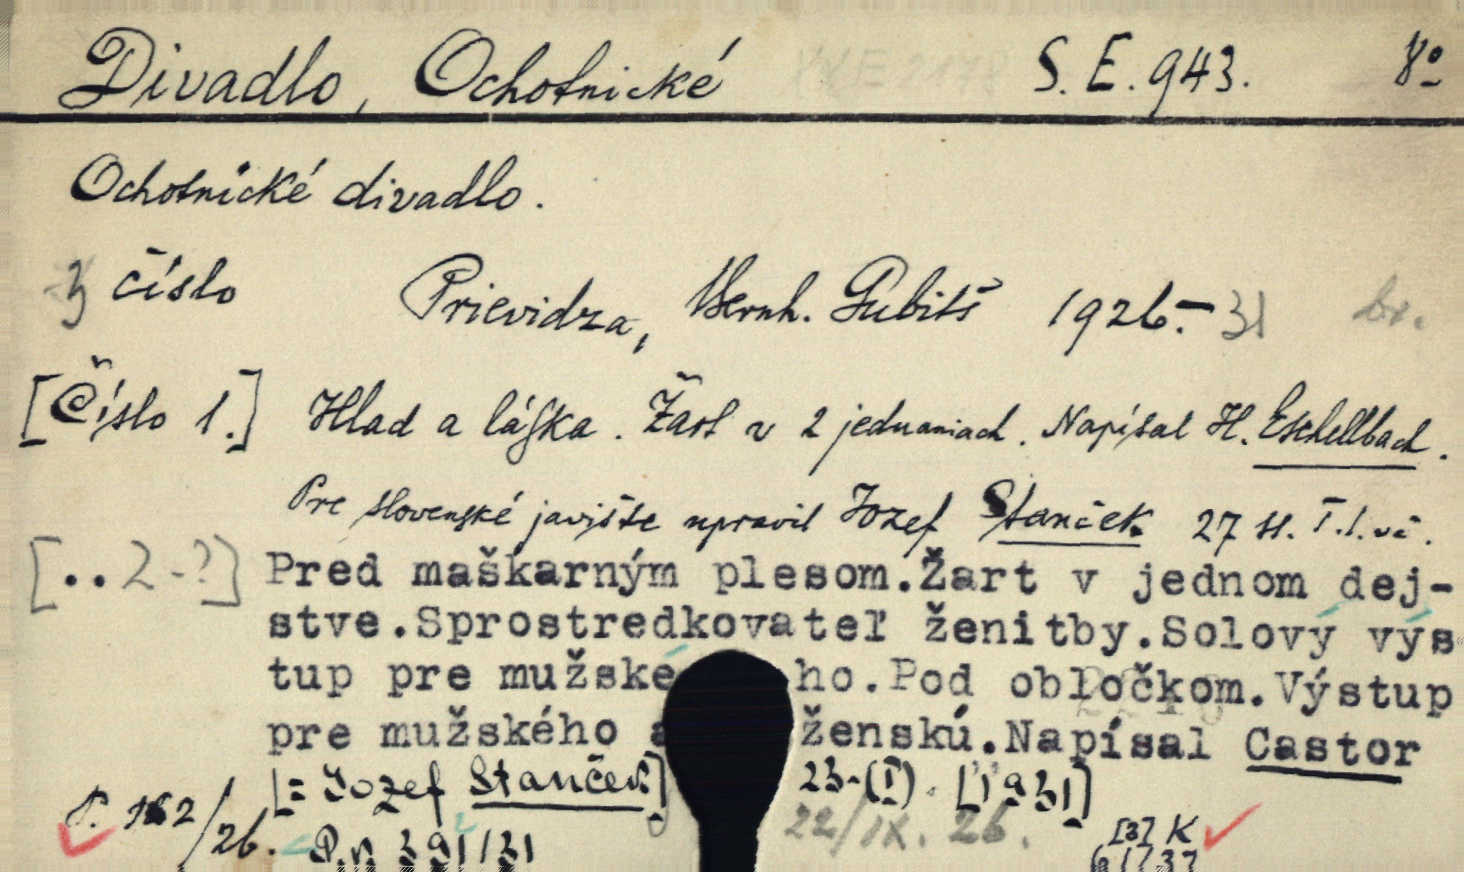 Divadlo, Ochotnické S.E.943. 8°
Ochotnícké divadlo.
3 číslo Prievidza, Bernh. Gubiš 1926.-31 br.
[Číslo 1.] Hlad a láska. Žart v 2 jednaniach. Napísal H. Eschellbach.
Pre slovenské javište upravil Jozef Stanček 27 st.
[..2-?] Pred maškarným plesom.Žart v jednom dej-
stve.Sprostredkovateľ ženitby.Solový výs
tup pre mužské ho.Pod obločkom.Výstup
pre mužského a ženskú.Napísal Castor
[= Jozef Stanček] 23-(I). [1931]
P. 162/26. 22/IX. 26. [3] K
P.n 391/31